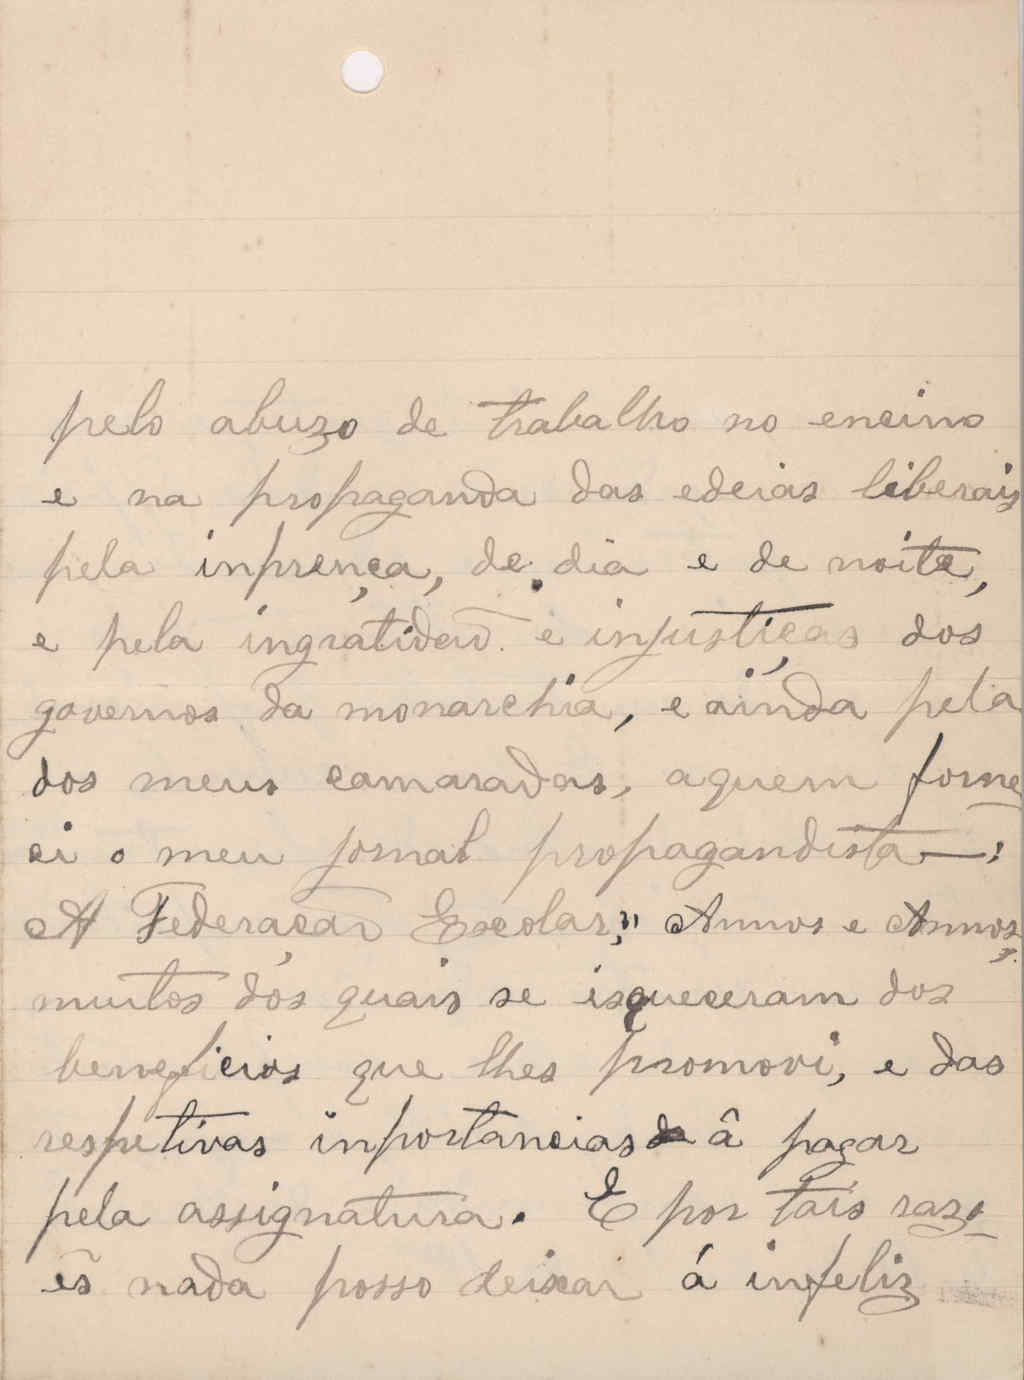 pelo abuzo de trabalho no encino
e na propaganda das edeias liberais
pela inprença, de dia e de noite,
e pela ingratidaõ e injustiças dos
governos da monarchia, e ainda pela
dos meus camaradas, aquem forne
ci o meu jornal propagandista—:
A Federaçaõ Escolar," Annos e Annos,
muitos dos quais se isqueceram dos
beneficios que lhes promovi, e das
respetivas inportancias â pagar
pela assignatura. E por tais razo
ẽs nada posso deixar á infeliz